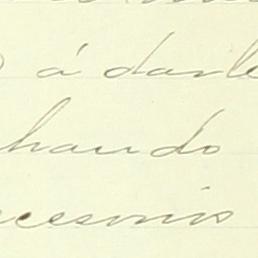 á darle
hando
cesorios